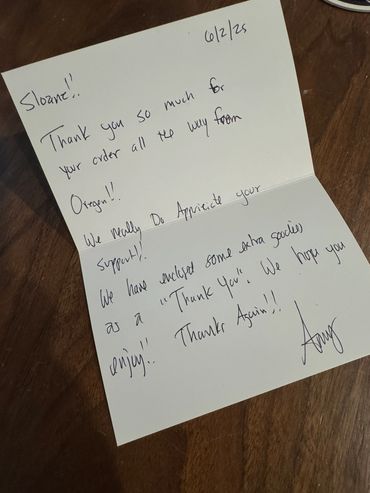 6/2/25
Sloane!!
Thank you so much for
your order all the way from
Oregon!!
We really Do Appriciate your
support!!
We have enclosed some extra goodies
as a "Thank You". We hope you
enjoy!! Thanks Again!!